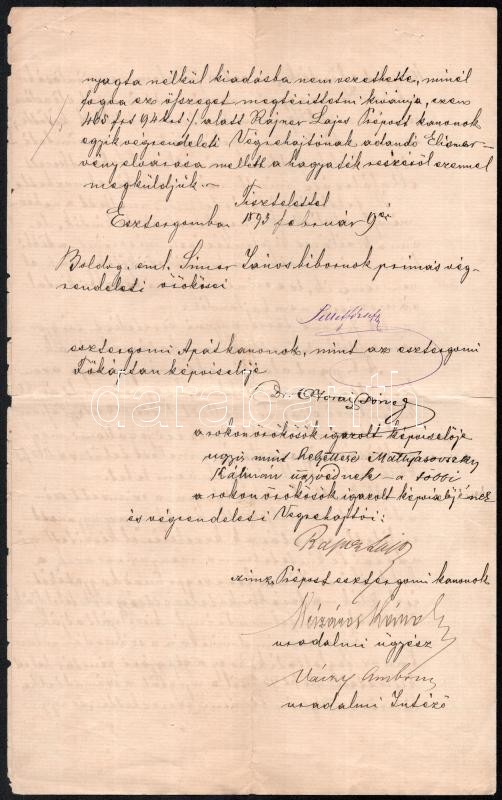 nyugta nélkül kiadásba nem vezethette, minél
fogva ez összeget megtéríttetni kívánja, ezen
465 frt 94 krt ·/. alatt Rajner Lajos Prépost kanonok
egyik végrendeleti Végrehajtónak adandó Elismer-
vény elvárása mellett a hagyaték részéről ezennel
megküldjük.-
Tisztelettel
Esztergomba 1893 február 19én
Boldog. eml. Simor János bibornok primás vég-
rendeleti örökösei
esztergomi Apátkanonok, mint az esztergomi
Főkáptan képviselője
Dr.
a rokonörökösök igazolt képviselője
ugyis mint helyettese Mattyasovszky
Kálmán ügyvédnek - a többi
a rokonörökösök igazolt képviselőjének
és végrendeleti Végrehajtói:
Rajner Lajos
czimz. Prépost esztergomi kanonok
Mészáros Károly
uradalmi ügyész
Ambró
uradalmi Intéző
darabanth